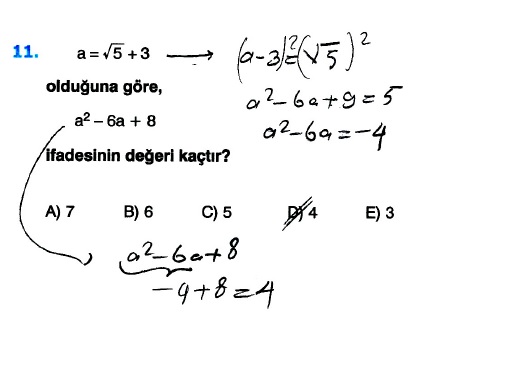 11. a = √5 + 3 ⟶ (a-3)² = (√5)²
olduğuna göre, a² - 6a + 9 = 5
a² – 6a + 8 a² - 6a = -4
ifadesinin değeri kaçtır?
A) 7 B) 6 C) 5 D) 4 E) 3
a² - 6a + 8
-4 + 8 = 4